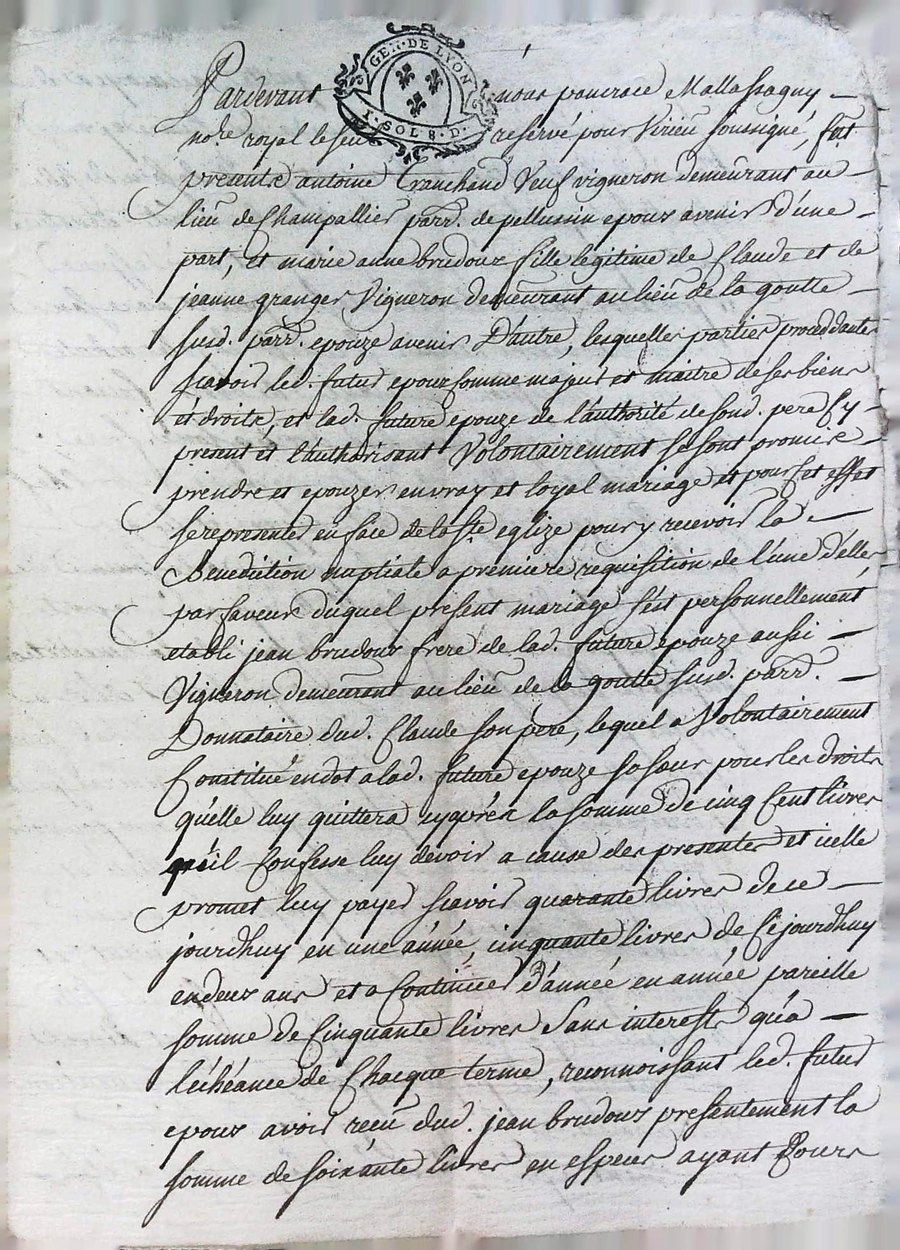 GEN. DE LYON
1. SOL 8. D.
Pardevant nous pancrace Mallassagny
no.re royal le seul reservé pour Virieu soussigné, fut
presents antoine Tranchand Veuf vigneron demeurant au
lieu de Champallier parr. de pellussin epoux avenir d'une
part, et marie anne brudoux fille legitime de Claude et de
jeanne granger Vigneron demeurant au lieu de la goutte
susd. parr. epouze avenir D'autre, lesquelles parties proceddantes
scavoir led. futur epoux comme majeur et maitre de ses biens
et droits, et lad. future epouze de l'authorité de sond. pere Cy
present et l'authorisant Volontairement se sont promis
prendre et epouzer en vray et loyal mariage et pour set effet
se representer en face de la s.te eglize pour y recevoir la
Benediction nuptiale a premiere requisition de l'une d'elles
par faveur duquel present mariage s'est personnellement
etabli jean brudoux frere de lad. future epouze aussi
Vigneron demeurant au lieu de la goutte susd. parr.
Donnataire dud. Claude son pere, lequel a Volontairement
Constitué en dot a lad. future epouze sa sœur pour les droits
qu'elle luy quittera cyprés la somme de cinq Cent livres
qu'il Confesse luy devoir a cause des presentes et icelle
promet luy payer scavoir quarante livres de ce
jourdhuy en une année, cinquante livres de Cejourdhuy
en deux ans et a Continuer d'année en année pareille
somme de Cinquante livres Sans interests qu'a
l'échéance de Chacque terme, reconnoissant led. futur
epoux avoir reçu dud. jean brudoux presentement la
somme de soixante livres en especes ayant Cours